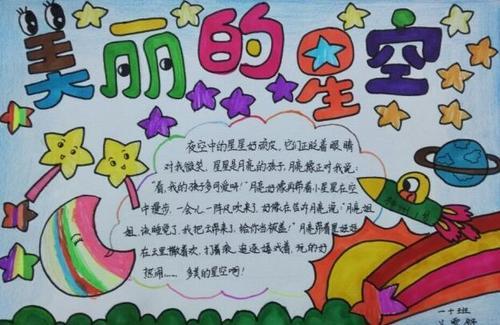 美丽的星空
夜空中的星星好顽皮,它们正眨着眼睛
对我微笑,星星是月亮的孩子,月亮像正对我说:
"看,我的孩子多可爱呀!"月亮好像用带着小星星在空
中漫步,一会儿一阵风吹来了,好像在告诉月亮说:"月亮姐
姐,该睡觉了,我把云带来了,给你当被盖!"月亮带着星娃娃
在云里撒着欢,打着滚,追逐嬉戏着,玩的好
热闹……多美的星空啊!
一十班